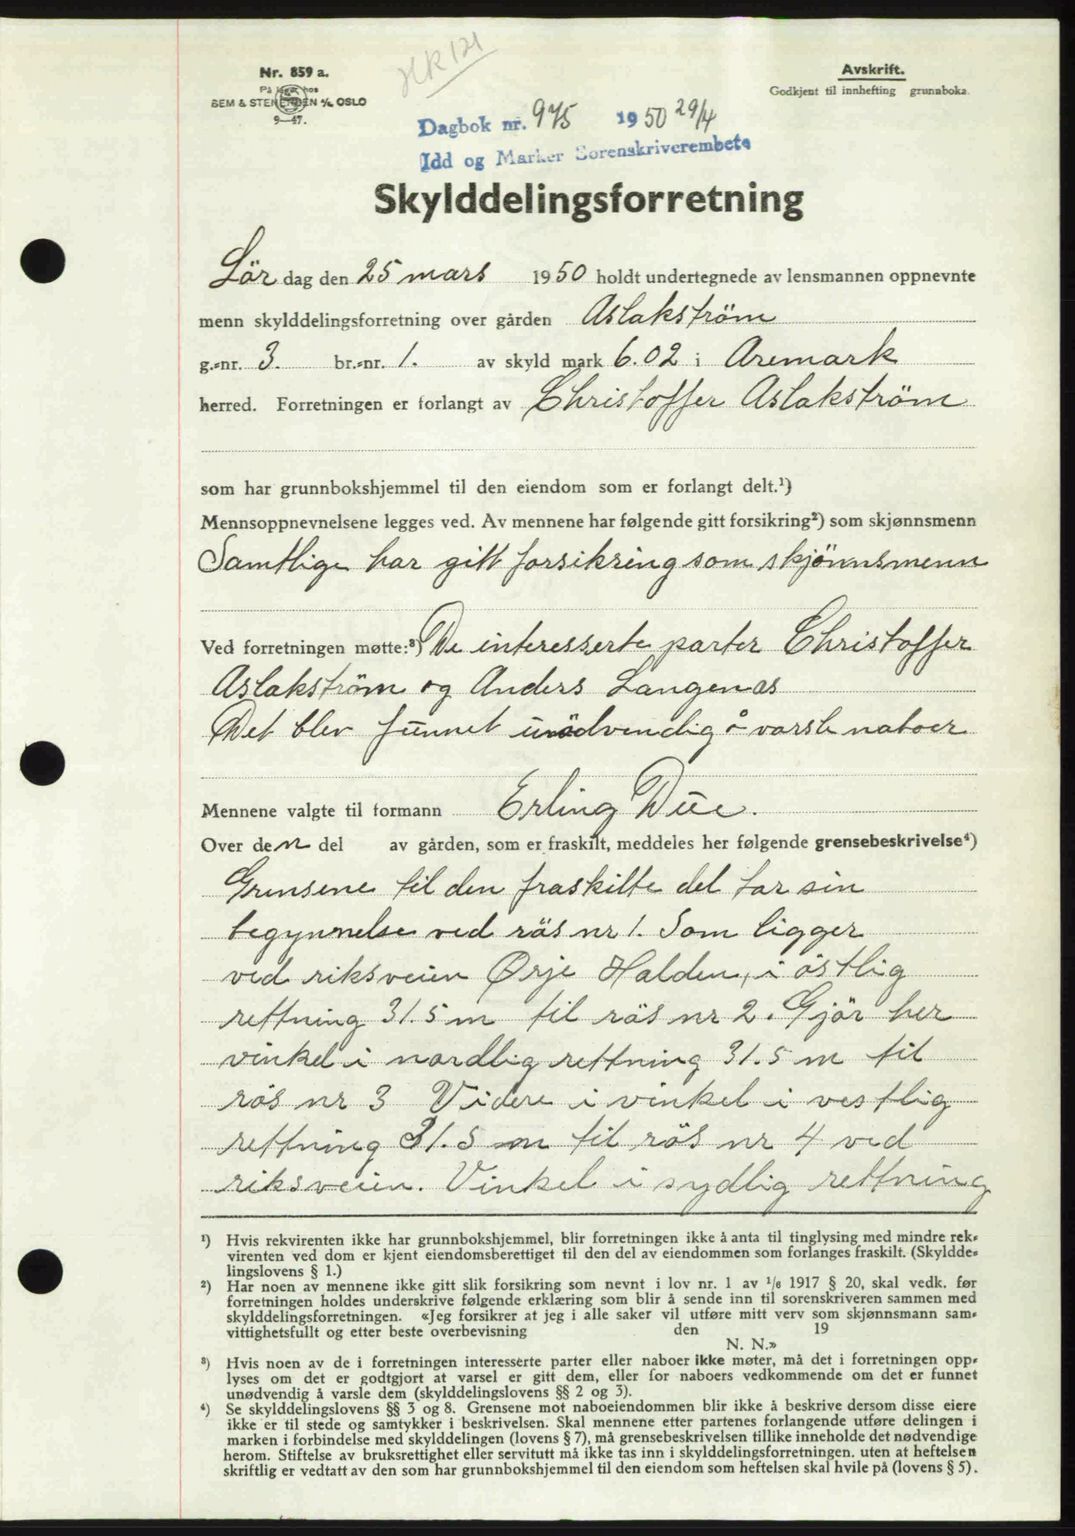 HR 121
Nr. 859 a.
På lager hos
SEM & STENERSEN A/S OSLO
9—47.
Avskrift.
Godkjent til innhefting grunnboka.
Dagbok nr. 975 1950 29/4
Idd og Marker Sorenskriverembete
Skylddelingsforretning
Lör dag den 25 mars 1950 holdt undertegnede av lensmannen oppnevnte
menn skylddelingsforretning over gården Aslakström
g.-nr. 3. br.-nr. 1. av skyld mark 6.02 i Aremark
herred. Forretningen er forlangt av Christoffer Aslakström
som har grunnbokshjemmel til den eiendom som er forlangt delt.¹)
Mennsoppnevnelsene legges ved. Av mennene har følgende gitt forsikring²) som skjønnsmenn
Samtlige har gitt forsikring som skjönnsmenn
Ved forretningen møtte:³) De interesserte parter Christoffer
Aslakström og Anders Langenæs
Det blev funnet unödvendig å varsle naboer
Mennene valgte til formann Erling Due.
Over den del av gården, som er fraskilt, meddeles her følgende grensebeskrivelse⁴)
Grensene til den fraskilte del tar sin
begynnelse ved rös nr 1. Som ligger
ved riksveien Ørje Halden, i östlig
rettning 31.5 m til rös nr 2. Gjör her
vinkel i nordlig rettning 31.5 m til
rös nr 3 Videre i vinkel i vestlig
rettning 31.5 m til rös nr 4 ved
riksveien. Vinkel i sydlig rettning
¹) Hvis rekvirenten ikke har grunnbokshjemmel, blir forretningen ikke å anta til tinglysing med mindre rek-
virenten ved dom er kjent eiendomsberettiget til den del av eiendommen som forlanges fraskilt. (Skyldde-
lingslovens § 1.)
²) Har noen av mennene ikke gitt slik forsikring som nevnt i lov nr. 1 av 1/6 1917 § 20, skal vedk. før
forretningen holdes underskrive følgende erklæring som blir å sende inn til sorenskriveren sammen med
skylddelingsforretningen. «Jeg forsikrer at jeg i alle saker vil utføre mitt verv som skjønnsmann sam-
vittighetsfullt og etter beste overbevisning den 19
N. N.»
³) Hvis noen av de i forretningen interesserte parter eller naboer ikke møter, må det i forretningen opp-
lyses om det er godtgjort at varsel er gitt dem, eller for naboers vedkommende om det er funnet
unødvendig å varsle dem (skylddelingslovens §§ 2 og 3).
⁴) Se skylddelingslovens §§ 3 og 8. Grensene mot naboeiendommen blir ikke å beskrive dersom disse eiere
ikke er til stede og samtykker i beskrivelsen. Skal mennene etter partenes forlangende utføre delingen i
marken i forbindelse med skylddelingen (lovens § 7), må grensebeskrivelsen tillike inneholde det nødvendige
herom. Stiftelse av bruksrettighet eller servitutt må ikke tas inn i skylddelingsforretningen. uten at heftelsen
skriftlig er vedtatt av den som har grunnbokshjemmel til den eiendom som heftelsen skal hvile på (lovens § 5).